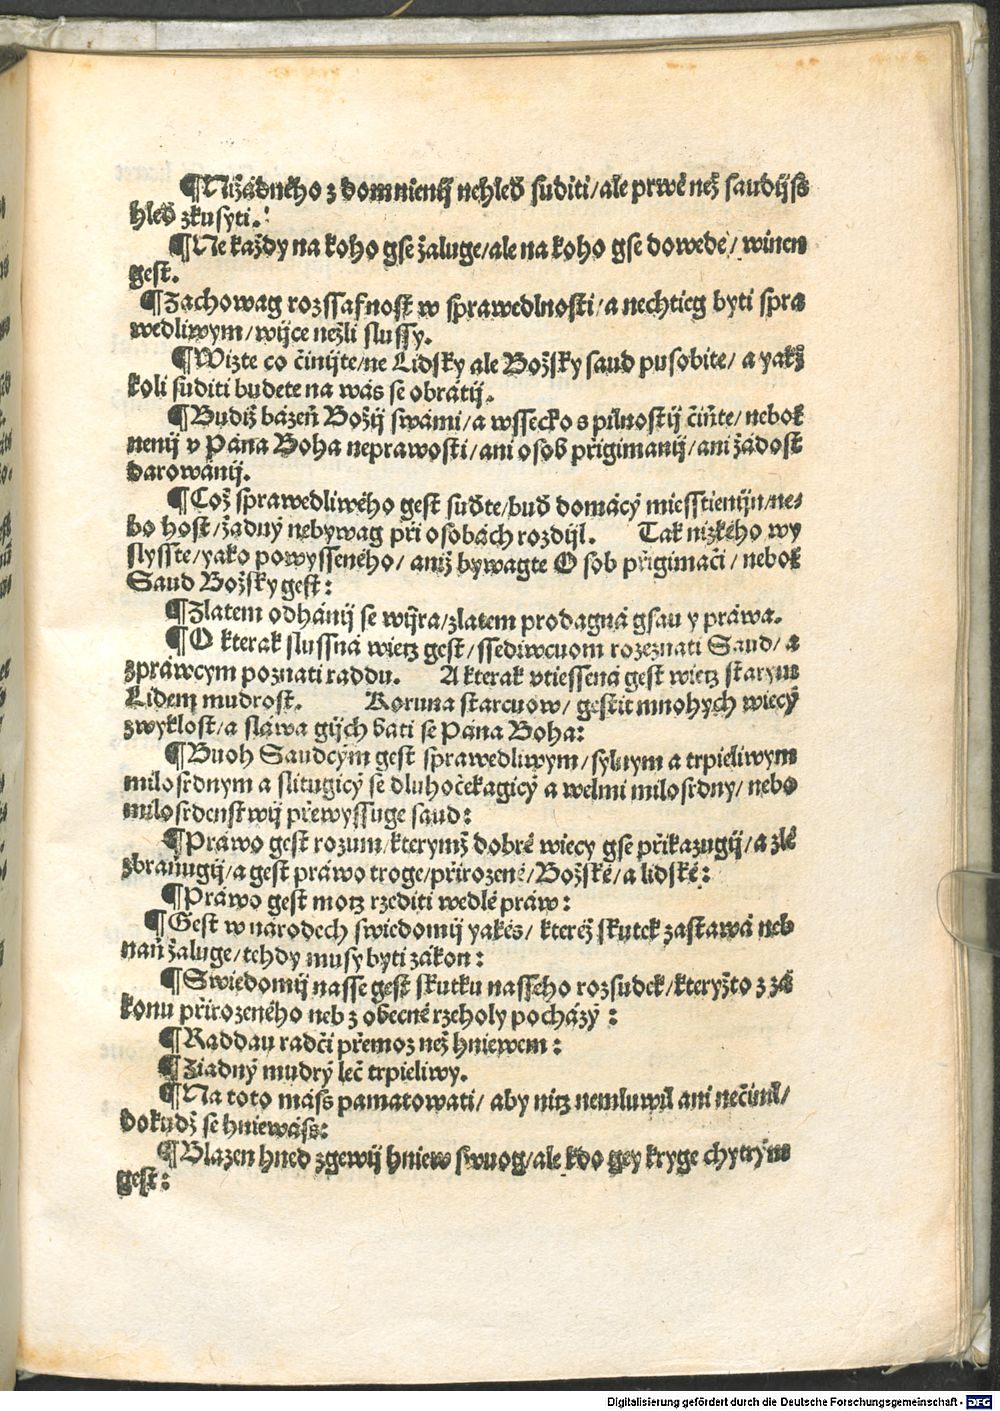 ¶Nižádného z domnienij nehleď suditi/ale prwé než saudijss
hleď zkusyti.
¶Ne každy na koho gse žaluge/ale na koho gse dowede/ winen
gest.
¶Zachowag rozssafnost w sprawedlnosti/a nechtieg byti spra
wedliwym/wijce nežli slussy.
¶Wizte co činijte/ne Lidsky ale Božsky saud pusobite/ a yakž
koli suditi budete na wás se obrátij.
¶Budiž bázeň Božij swámi/a wssecko s pilnostij čiňte/neboť
nenij v Pána Boha neprawosti/ani osob přigimanij/ani žádost
darowánij.
¶Což sprawedliwého gest suďte/buď domácý miesstienijn/ne-
bo host/žadný nebywag při osobách rozdijl. Tak nizkého wy
slysste/yako powysseného/ aniž bywagte Osob přigimači/ neboť
Saud Božsky gest:
¶Zlatem odhánij se wijra/zlatem prodagná gsau y práwa.
¶O kterak slussná wietz gest/ssediwcuom rozeznati Saud/ a
zpráwcym poznati raddu. A kterak vtiessená gest wietz starym
Lidem mudrost. Koruna starcuow/ gestit mnohych wiecý
zwyklost/a sláwa gijch bati se Pána Boha:
¶Buoh Saudcým gest sprawedliwym/sylnym a trpieliwym
milosrdnym a slitugicý se dluhočekagicý a welmi milosrdny/ nebo
milosrdenstwij přewyssuge saud:
¶Práwo gest rozum/kterymž dobré wiecy gse přikazugij/a zlé
zbraňugij/a gest práwo troge/přirozené/Božské/a lidské:
¶Práwo gest motz rzediti wedlé práw:
¶Gest w národech swiedomij yakés/ kteréž skutek zastawá neb
naň žaluge/tehdy musy byti zákon:
¶Swiedomij nasse gest skutku nasseho rozsudek/kteryžto z zá
konu přirozeného neb z obecné rzeholy pocházý :
¶Raddau radči přemoz než hniewem :
¶Ziadný mudrý leč trpieliwy.
¶Na toto máss pamatowati/ aby nitz nemluwil ani nečinil/
dokudž se hniewáss:
¶Blázen hned zgewij hniew swuog/ale kdo gey kryge chytrým
gest:
Digitalisierung gefördert durch die Deutsche Forschungsgemeinschaft - DFG